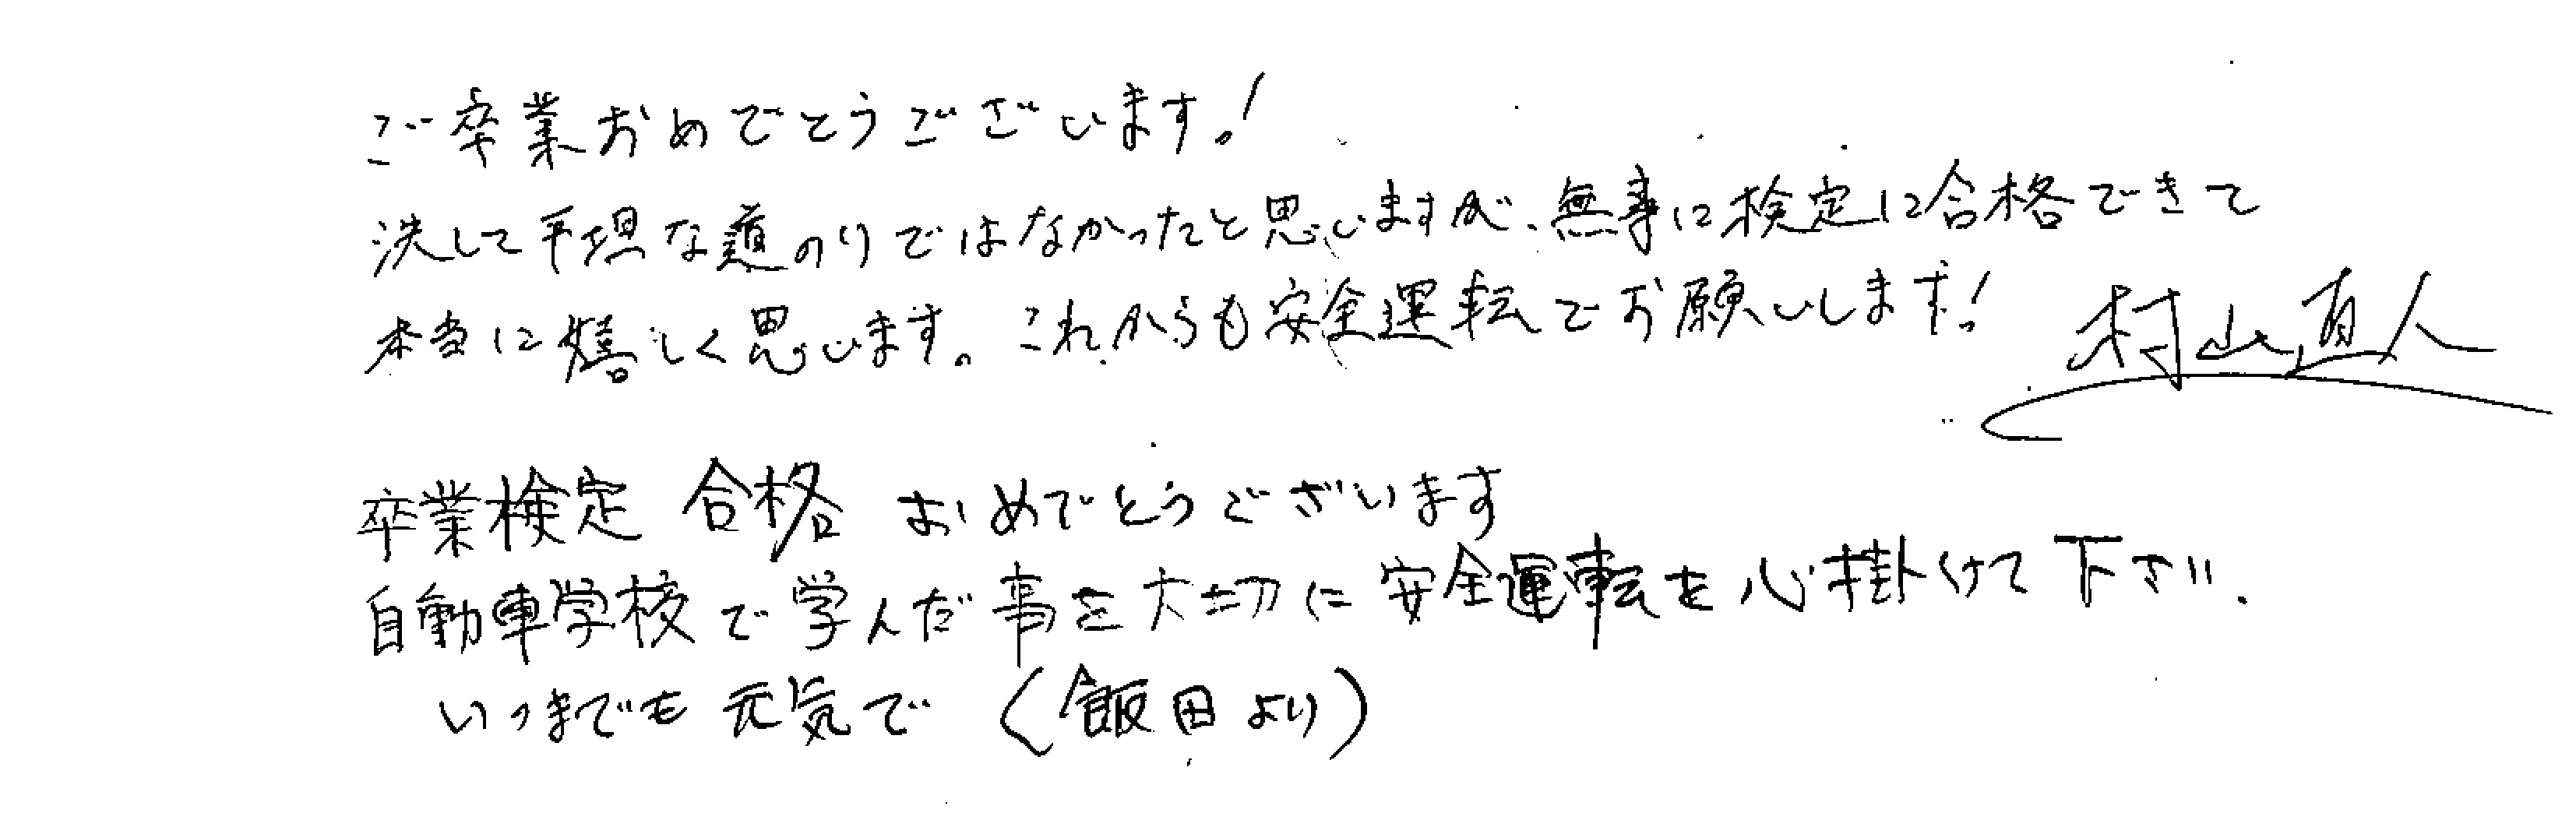 ご卒業おめでとうございます!
決して平坦な道のりではなかったと思いますが、無事に検定に合格できて
本当に嬉しく思います。これからも安全運転でお願いします! 村山直人
卒業検定 合格 おめでとうございます
自動車学校で学んだ事を大切に安全運転を心掛けて下さい.
いつまでも元気で (飯田より)